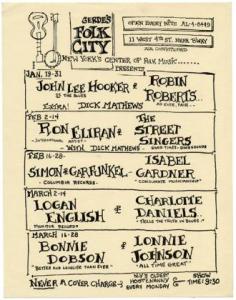 GERDE'S
FOLK
CITY
OPEN EVERY NITE AL-4-8449
11 WEST 4TH ST. NEAR B'WAY
AIR CONDITIONED
NEW YORK'S CENTER OF FOLK MUSIC......
PRESENTS
JAN. 19-31
JOHN LEE HOOKER & ROBIN ROBERTS...
IS THE BLUES
AS EVER, FAIR...
EXTRA! DICK MATHEWS
FEB 2-14
RON ELIRAN & THE STREET SINGERS
INTERNATIONAL ARTIST
- WITH DICK MATHEWS -
FEB 16-28-
SIMON & GARFUNKEL - ISABEL GARDNER
- COLUMBIA RECORDS -
"CONSUMMATE MUSICIANSHIP"
MARCH 2-14
LOGAN ENGLISH & CHARLOTTE DANIELS..
MONITOR RECORDS
MARCH 16-28
BONNIE DOBSON & LONNIE JOHNSON
"BETTER AND LOVELIER THAN EVER"
"ALL TIME GREAT"
NEVER A COVER CHARGE
N.Y.'S OLDEST
HOOTENANNY
EVERY MONDAY
SHOW
TIME: 9:30